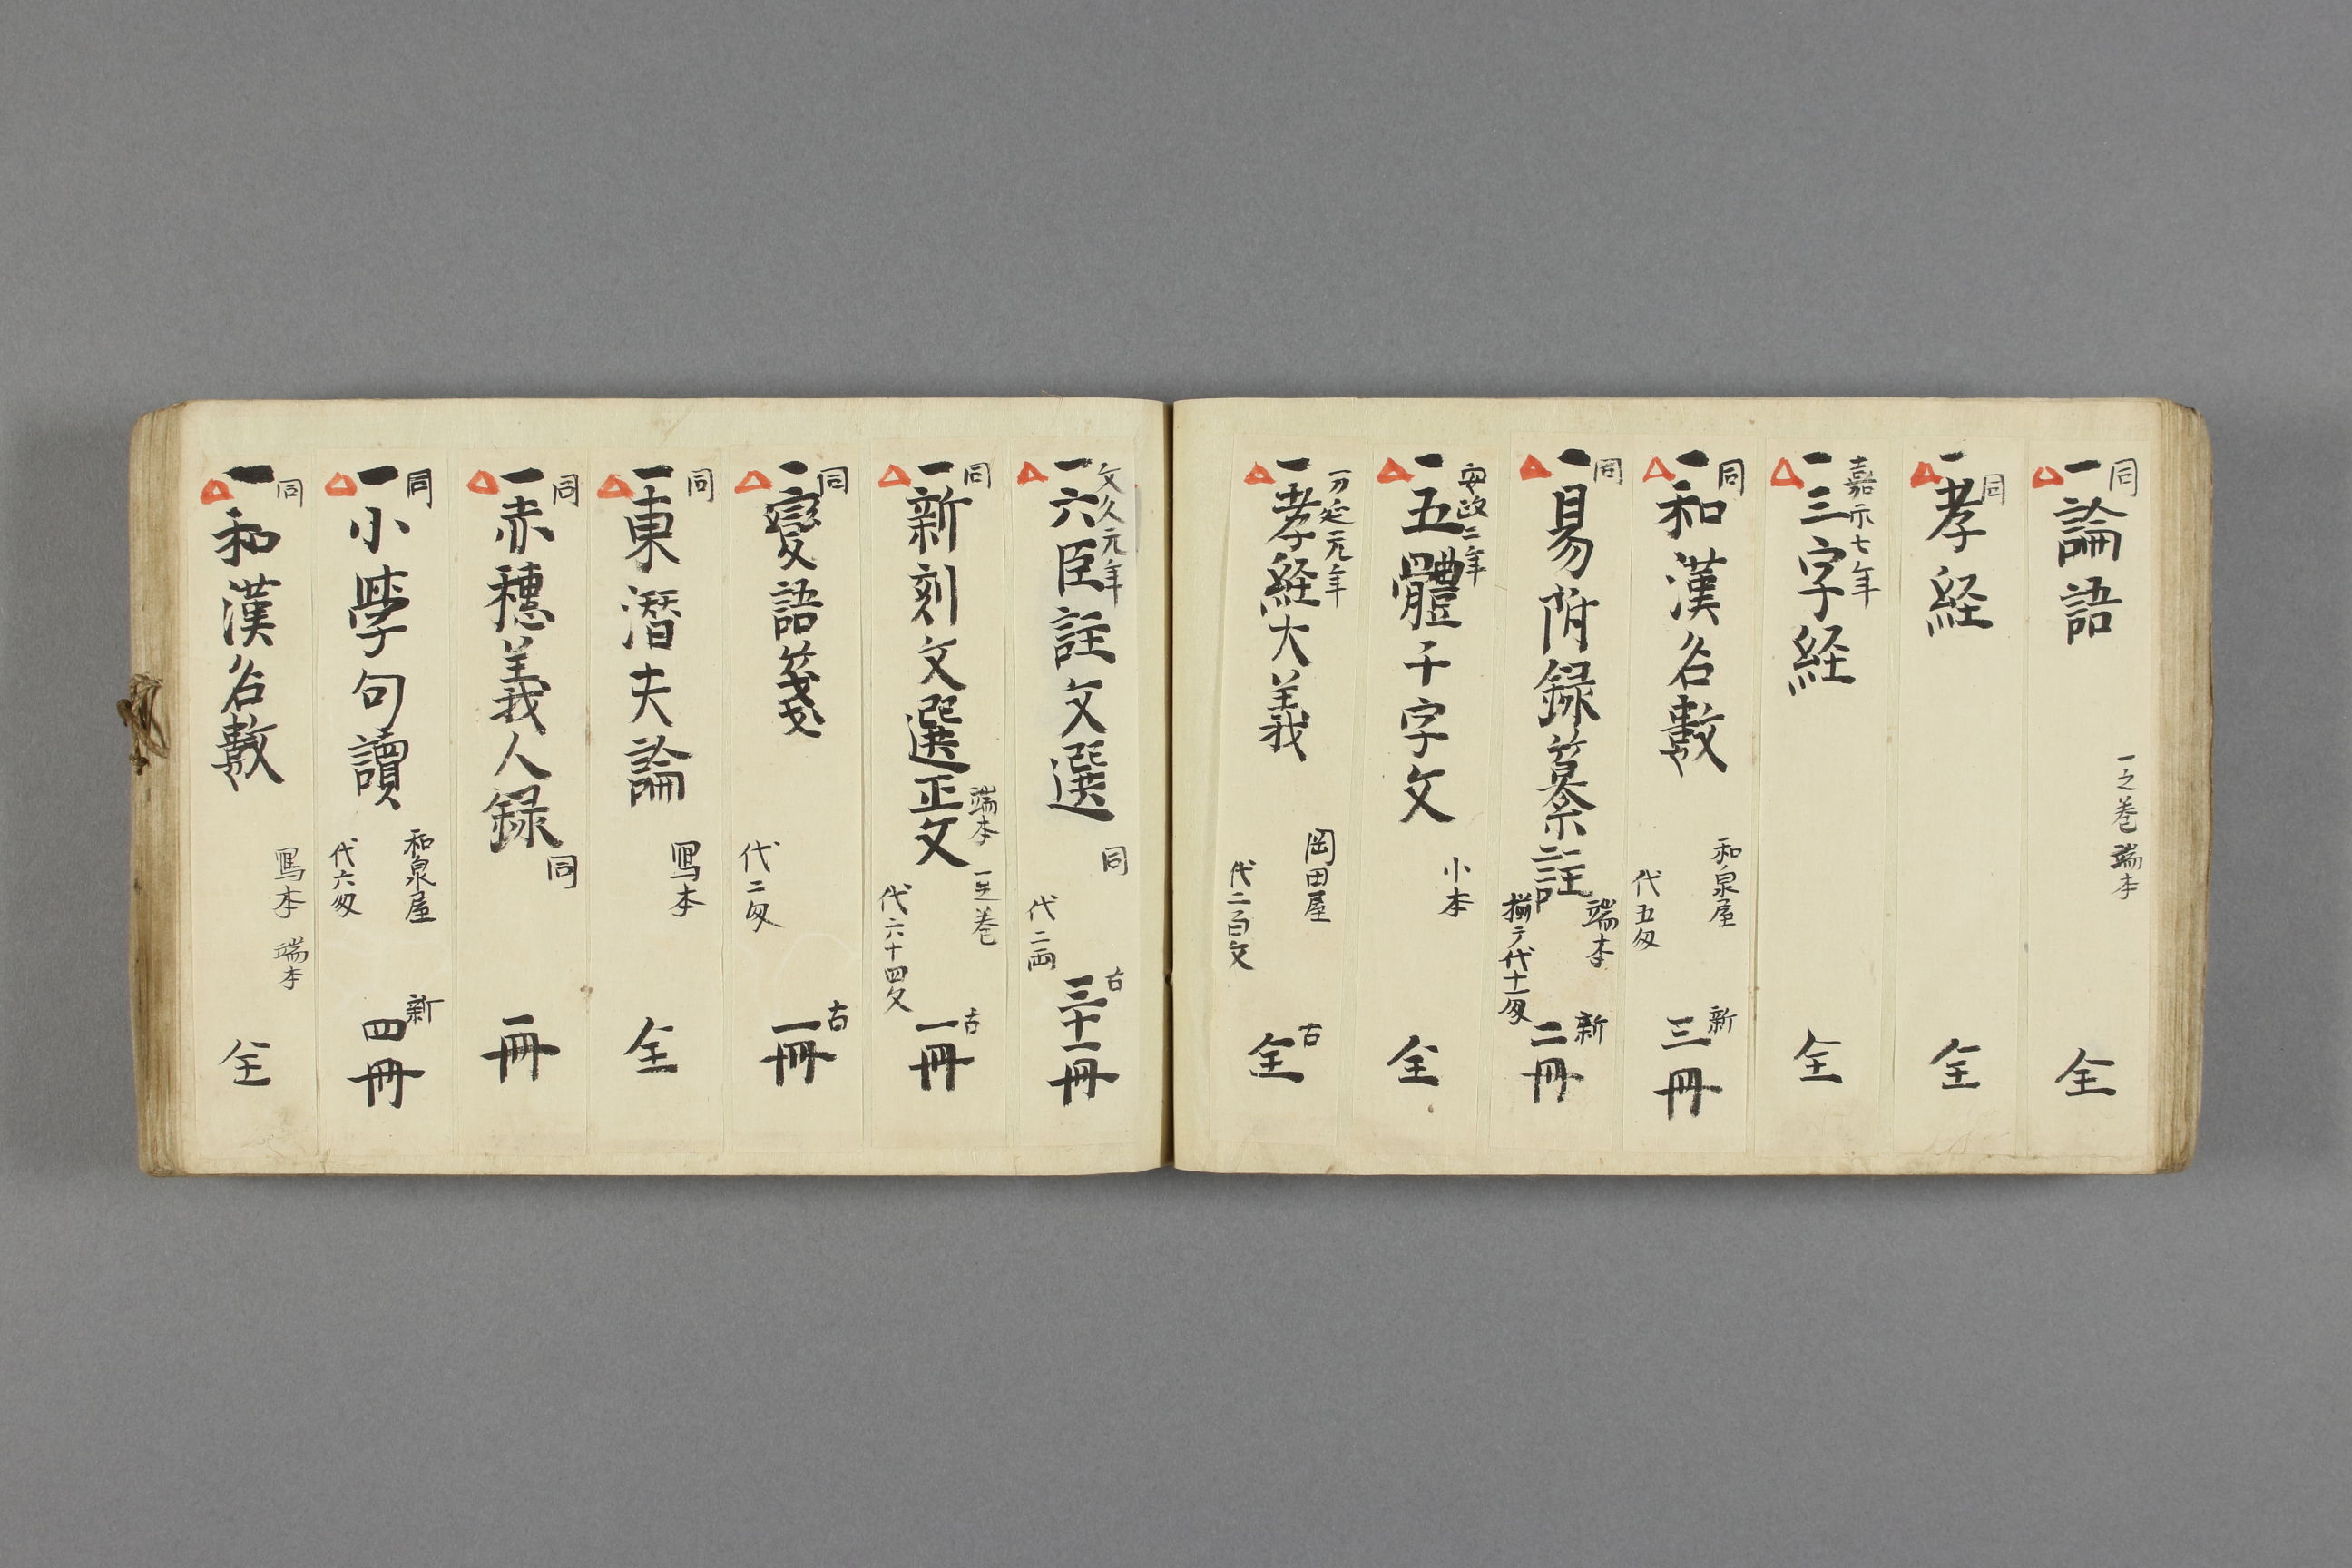 同 一論語 一之巻 端本 全
同 一孝経 全
嘉永七年 一三字経 全
同 一和漢名數 和泉屋 代五匁 新 三冊
同 一易附録纂註 端本 揃テ代十一匁 新 二冊
安政二年 一五體千字文 小本 全
万延元年 一孝経大義 岡田屋 代二百文 古 全
文久元年 一六臣註文選 同 代二両 古 三十一冊
同 一新刻文選正文 端本 一之巻 代六十四文 古 一冊
同 一變語箋 代二匁 古 一冊
同 一東潜夫論 寫本 全
同 一赤穗義人録 同 一冊
同 一小學句讀 和泉屋 代六匁 新 四冊
同 一和漢名數 寫本 端本 全